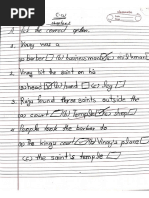 1. Tick the correct option.
2. Vinay was a
a) barber (b) businessman (c) milkman
2. Vinay hit the saint on his
a) head (b) hand (c) leg
3. Raju found three saints outside the
a) court (b) Temple (c) shop
4. People took the barber to
a) The King's court (b) Vinay's place
(c) the saint's temple